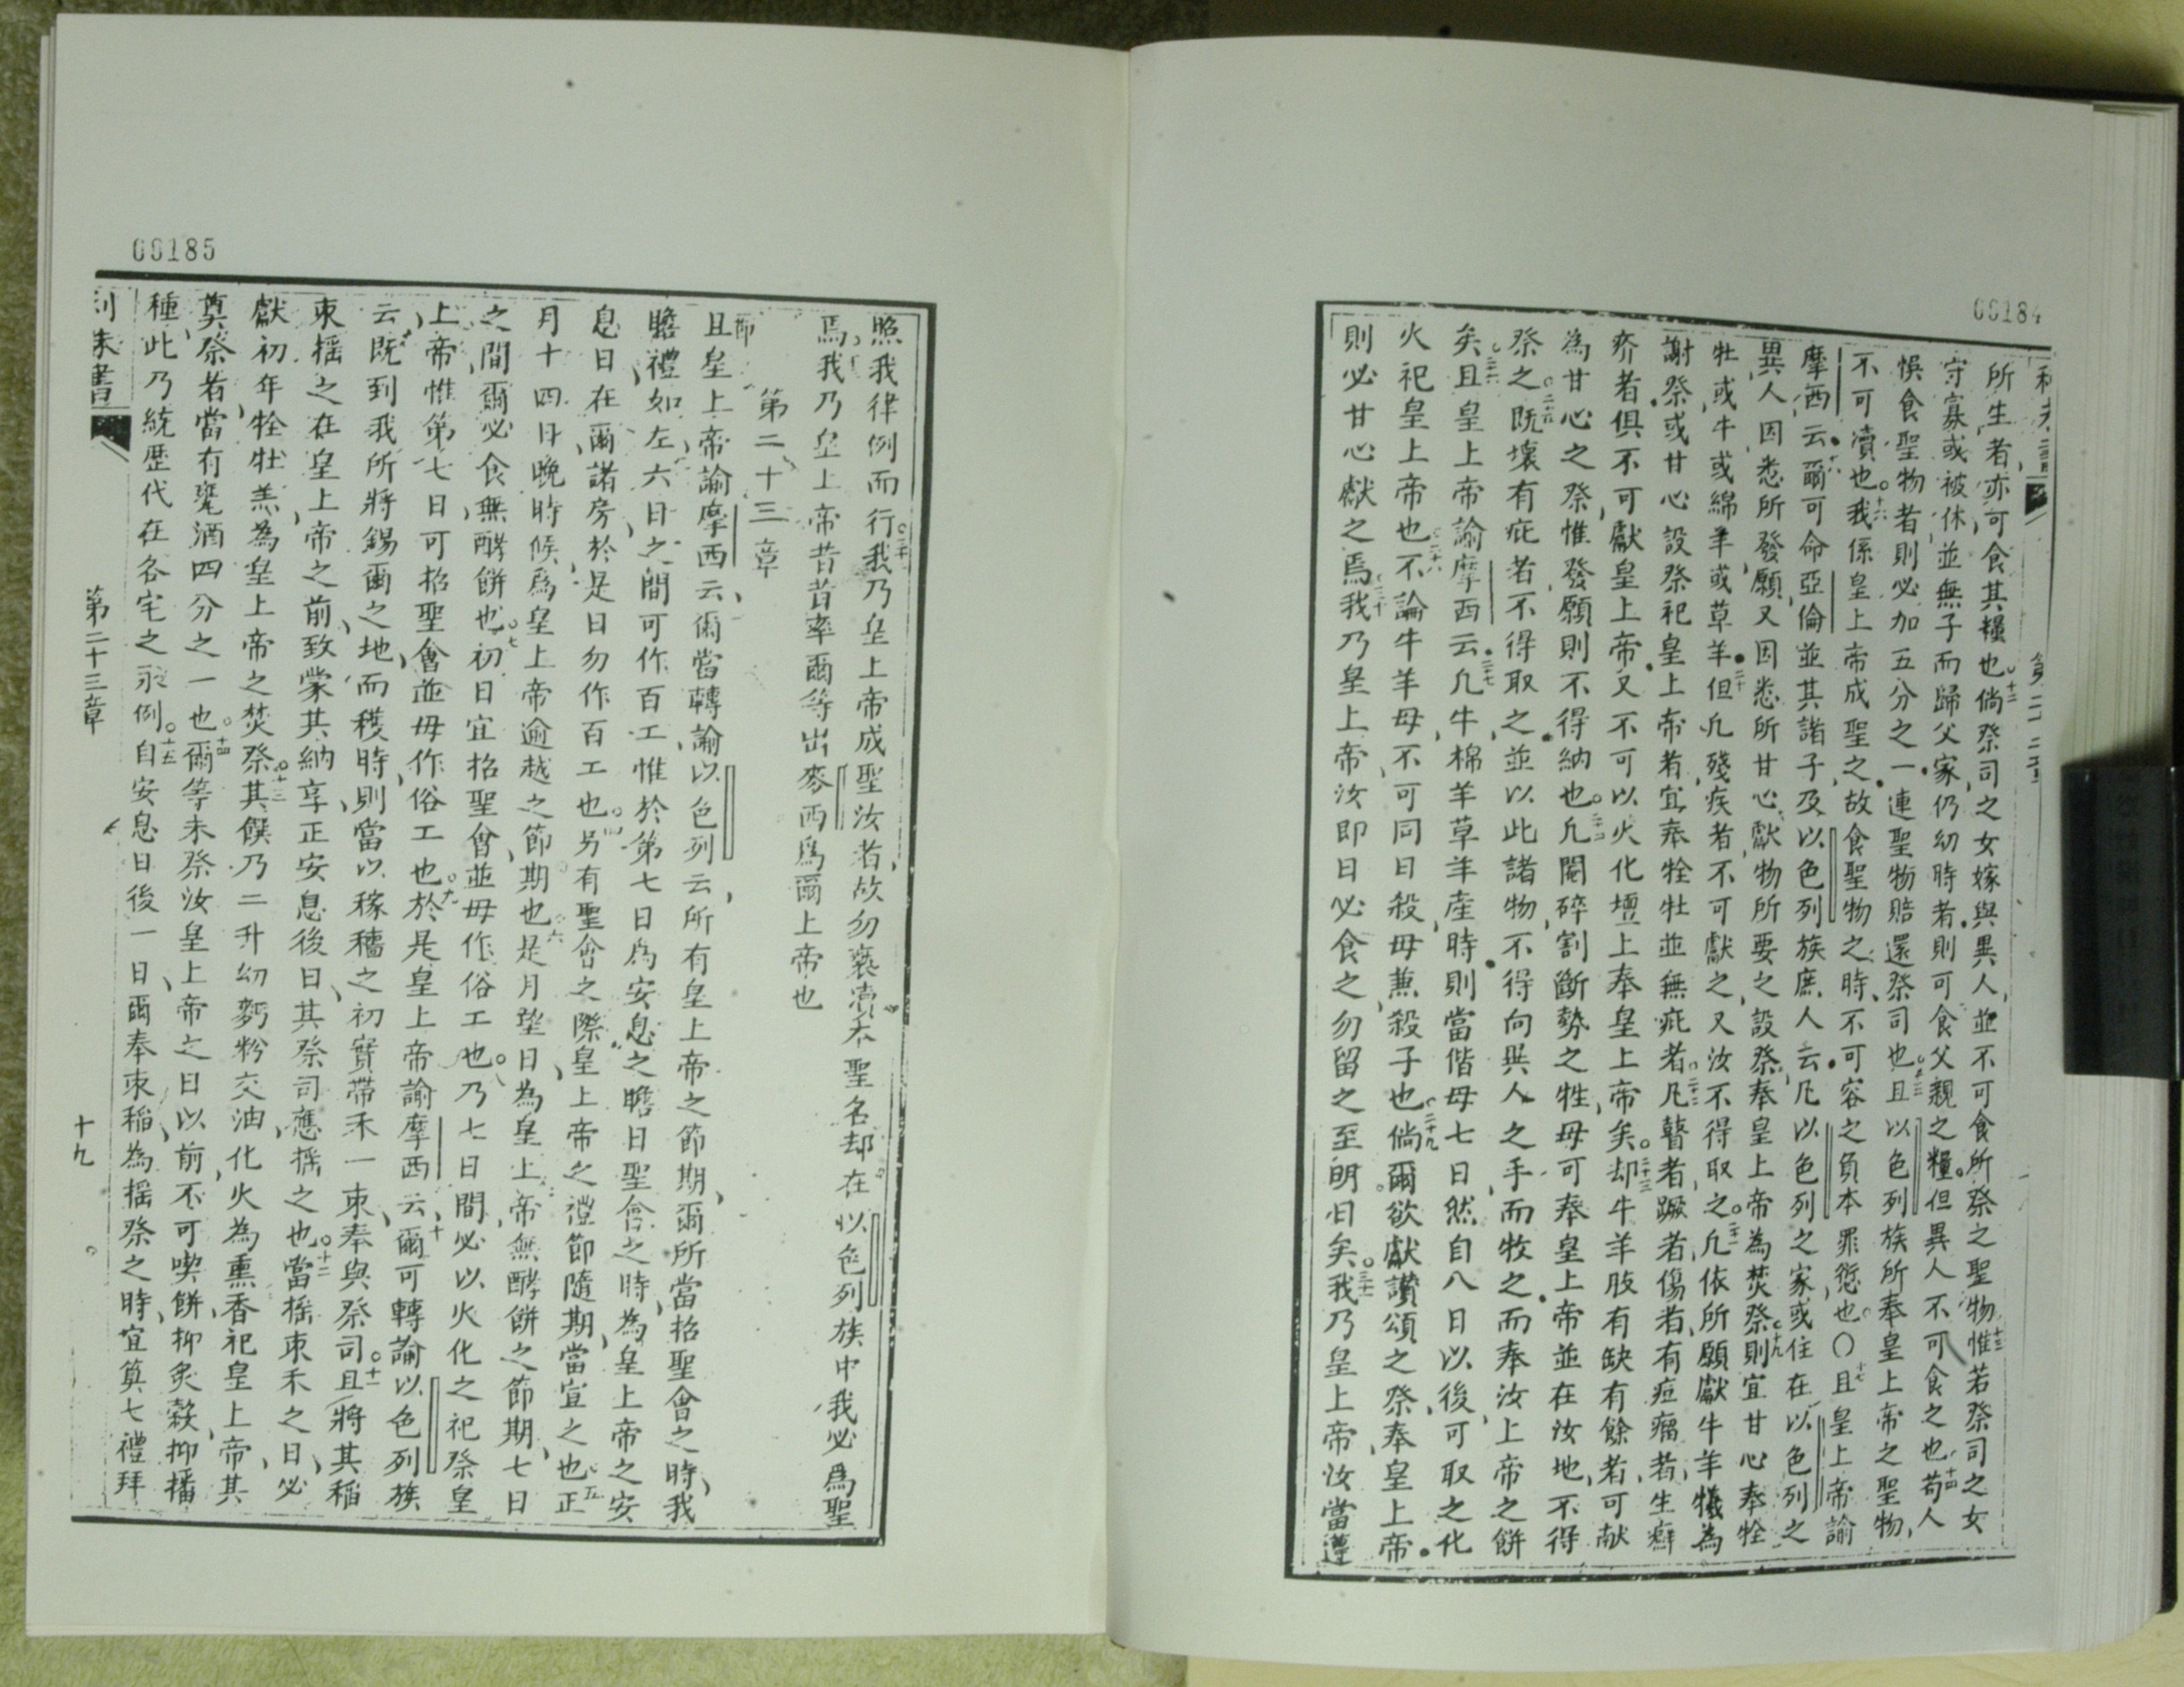 00184
所生者亦可食其糧也十二倘祭司之女嫁與異人並不可食所祭之聖物十三惟若祭司之女
守寡或被休並無子而歸父家仍幼時者則可食父親之糧但異人不可食之也十四苟人
悞食聖物者則必加五分之一連聖物賠還祭司也十五且以色列族所奉皇上帝之聖物
不可瀆也十六我係皇上帝成聖之故食聖物之時不可容之負本罪愆也〇十七且皇上帝諭
摩西云十八爾可命亞倫並其諸子及以色列族庶人云凡以色列之家或住在以色列之
異人因悉所發願又因悉所甘心獻物所要之設祭奉皇上帝為焚祭十九則宜甘心奉牷
牡或牛或綿羊或草羊二十但凡殘疾者不可獻之又汝不得取之二十一凡依所願獻牛羊犧為
謝祭或甘心設祭祀皇上帝者宜奉牷牡並無疵者二十二凡瞽者蹶者傷者有痘瘤者生癬
疥者俱不可獻皇上帝又不可以火化壇上奉皇上帝矣二十三却牛羊肢有缺有餘者可献
為甘心之祭惟發願則不得納也二十四凡閹碎割斷勢之牲毋可奉皇上帝並在汝地不得
祭之二十五既壞有疵者不得取之並以此諸物不得向異人之手而牧之而奉汝上帝之餅
矣二十六且皇上帝諭摩西云二十七凡牛棉羊草羊產時則當偕母七日然自八日以後可取之化
火祀皇上帝也二十八不論牛羊母不可同日殺母兼殺子也二十九倘爾欲獻讚頌之祭奉皇上帝
則必甘心獻之焉三十我乃皇上帝汝即日必食之勿留之至明日矣三十一我乃皇上帝汝當遵
00185
照我律例而行三十二我乃皇上帝成聖汝者故勿褻瀆吾聖名却在以色列族中我必為聖
焉我乃皇上帝昔昔率爾等出麥西為爾上帝也
第二十三章
節
且皇上帝諭摩西云爾當轉諭以色列云所有皇上帝之節期爾所當招聖會之時我
瞻禮如左六日之間可作百工惟於第七日為安息之瞻日聖會之時為皇上帝之安
息日在爾諸房於是日勿作百工也四另有聖會之際皇上帝之禮節隨期當宣之也五正
月十四日晚時候為皇上帝逾越之節期也六是月望日為皇上帝無酵餅之節期七日
之間爾必食無酵餅也七初日宜招聖會並毋作俗工也八乃七日間必以火化之祀祭皇
上帝惟第七日可招聖會並毋作俗工也九於是皇上帝諭摩西云十爾可轉諭以色列族
云既到我所將錫爾之地而穫時則當以稼穡之初實帶禾一束奉與祭司十一且將其稲
束搖之在皇上帝之前致蒙其納享正安息後日其祭司應搖之也十二當搖束禾之日必
獻初年牷牡羔為皇上帝之焚祭十三其饌乃二升幼麪粉交油化火為熏香祀皇上帝其
奠祭者當有毣酒四分之一也十四爾等未祭汝皇上帝之日以前不可喫餅抑炙穀抑播
種此乃統歷代在各宅之永例十五自安息日後一日爾奉束稲為搖祭之時宜算七禮拜
利未書
第二十三章
十九